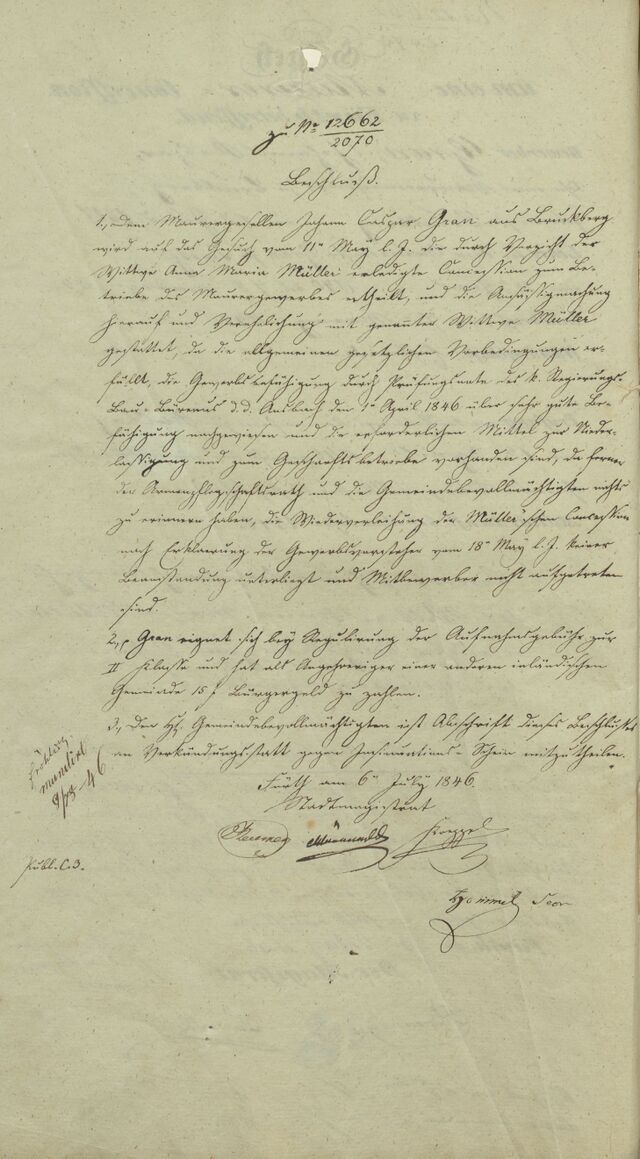 zu No 12662
2070
Beschluß.
1., Dem Maurergesellen Johann Caspar Gran aus Bruckberg
wird auf das Gesuch vom 11n May l. J. die durch Verzicht der
Wittwe Anna Maria Müller erledigte Concession zum Be-
triebe des Maurergewerbes ertheilt, und die Ansässigmachung
hierauf und Verehelichung mit genannter Wittwe Müller
gestattet, da die allgemeinen gesetzlichen Vorbedingungen er-
füllt, die Gewerbsbefähigung durch Prüfungsnote des k. Regierungs-
Bau-Büreaus d. d. Ansbach den 1n April 1846 über sehr gute Be-
fähigung nachgewiesen und die erforderlichen Mittel zur Nieder-
lassigung und zum Geschäftsbetriebe vorhanden sind, da ferner
der Armenpflegschaftsrath und die Gemeindebevollmächtigten nichts
zu erinnern haben, die Wiederverleihung der Müller'schen Concession
nach Erklaerung der Gewerbsvorsteher vom 18n May l. J. keiner
Beanstandung unterliegt und Mitbewerber nicht aufgetreten
sind.
2., Gran eignet sich bey Regulirung der Aufnahmsgebühr zur
II Klasse und hat als Angehoeriger einer anderen inländischen
Gemeinde 15 f Bürgergeld zu zahlen.
3., Den Hz. Gemeindebevollmächtigten ist Abschrift dieses Beschlußes
an Verkündungsstatt gegen Insinuations-Schein mitzutheilen.
Fürth am 6n July 1846.
Stadtmagistrat
mundirt
46
Publ. C. 3.
Hommel